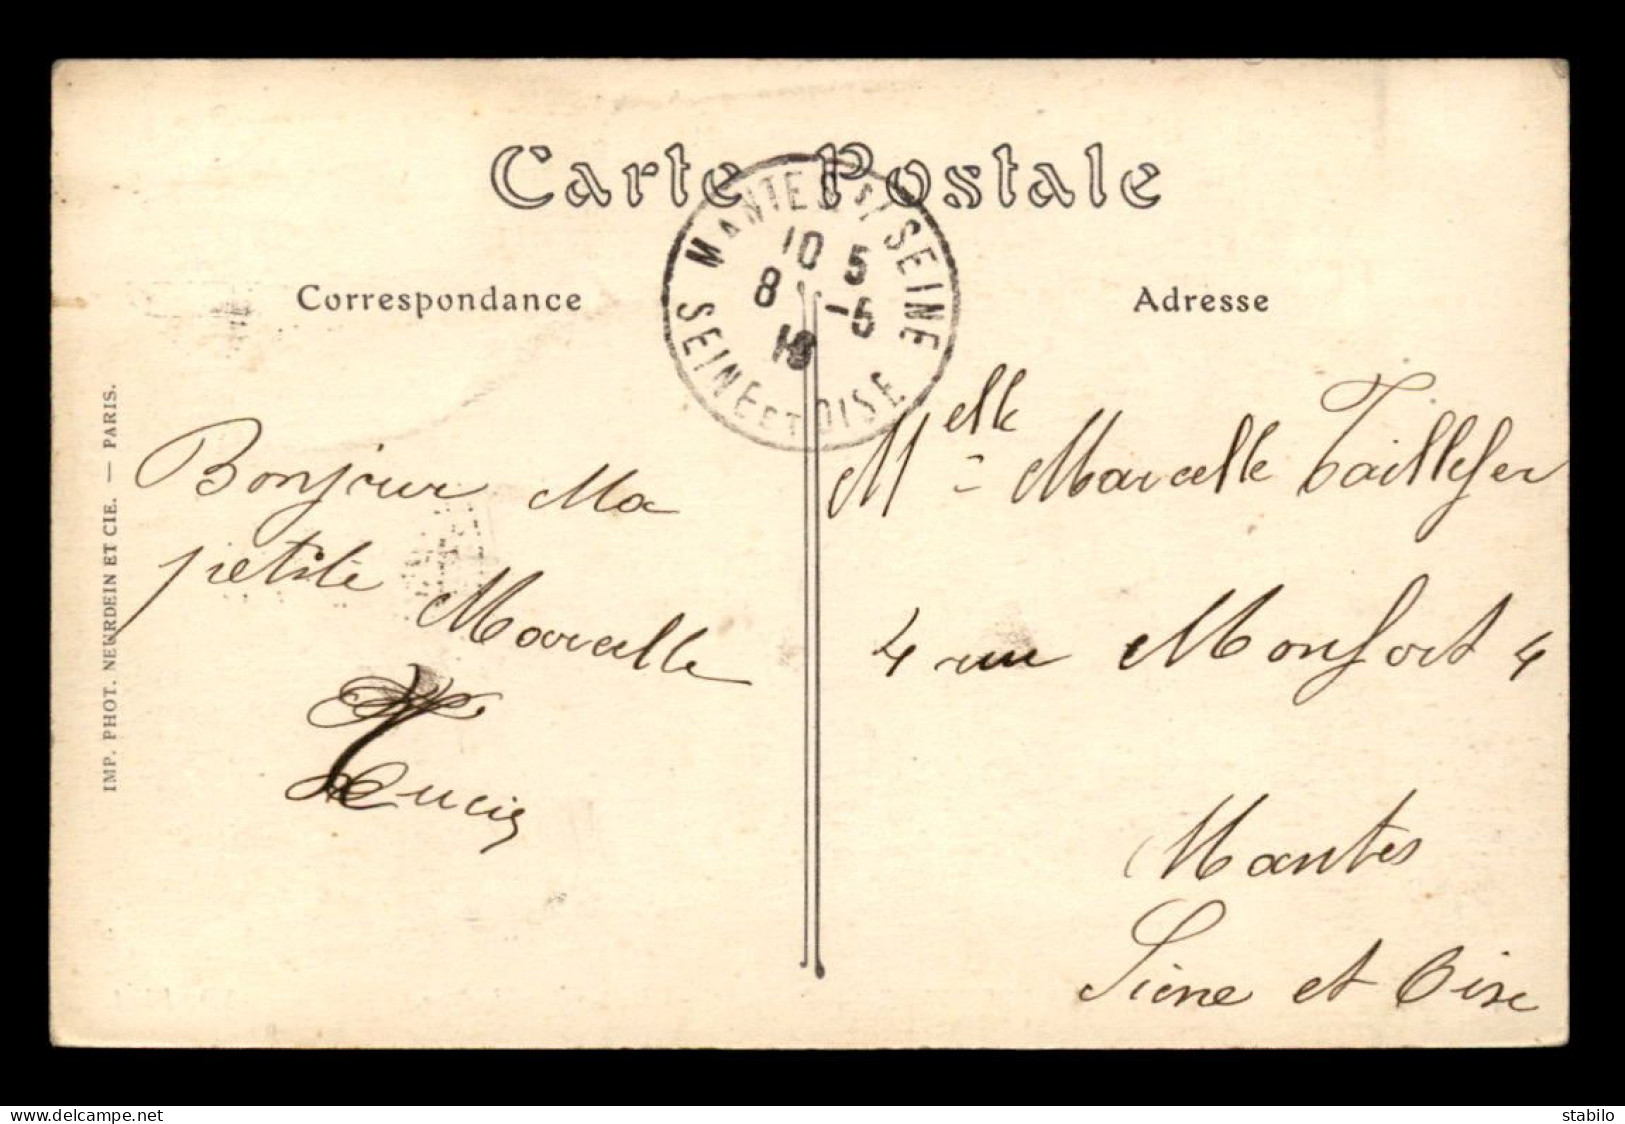 Carte Postale
MANTES S/ SEINE
10 5
8 -5
10
SEINE ET OISE
Correspondance
Adresse
IMP. PHOT. NEURDEIN ET CIE. — PARIS.
Bonjour Ma
petite Marcelle
Lucie
Melle Marcelle Taillefer
4 rue Monfort 4
Mantes
Siene et Oise
www.delcampe.net
stabilo